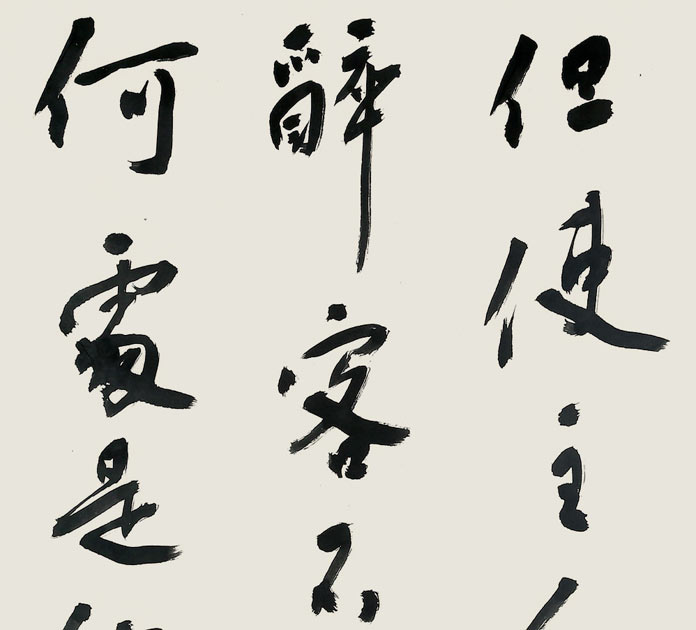 但使主
醉客不
何處是